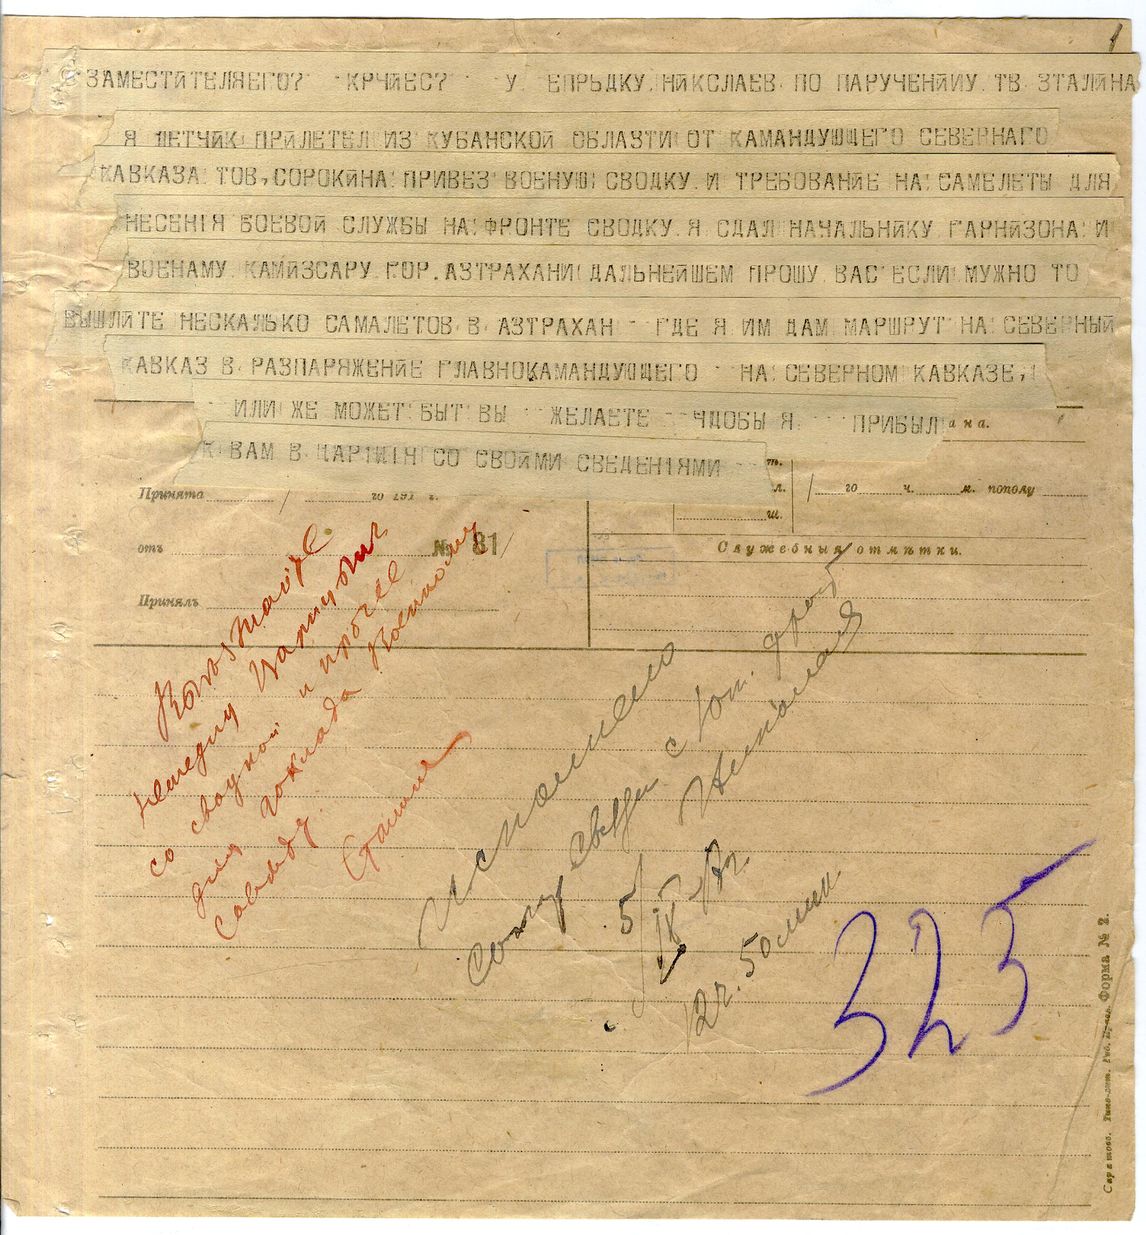 ЗАМЕСТИТЕЛЯЕГО? КРЧИЕС? У ЕПРЬДКУ НИКСЛАЕВ ПО ПАРУЧЕНИИУ ТВ ЗТАЛИНА
Я ЛЕТЧИК ПРИЛЕТЕЛ ИЗ КУБАНСКОЙ ОБЛАЗТИ ОТ КАМАНДУЮЩЕГО СЕВЕРНАГО
КАВКАЗА ТОВ, СОРОКИНА ПРИВЕЗ ВОЕНУЮ СВОДКУ И ТРЕБОВАНИЕ НА САМЕЛЕТЫ ДЛЯ
НЕСЕНІЯ БОЕВОЙ СЛУЖБЫ НА ФРОНТЕ СВОДКУ Я СДАЛ НАЧАЛЬНИКУ ГАРНИЗОНА И
ВОЕНАМУ КАМИЗСАРУ ГОР. АЗТРАХАНИ ДАЛЬНЕЙШЕМ ПРОШУ ВАС ЕСЛИ МУЖНО ТО
ВЫШЛИТЕ НЕСКАЛЬКО САМАЛЕТОВ В АЗТРАХАН ГДЕ Я ИМ ДАМ МАРШРУТ НА СЕВЕРНЫЙ
КАВКАЗ В РАЗПАРЯЖЕНИЕ ГЛАВНОКАМАНДУЮЩЕГО НА СЕВЕРНОМ КАВКАЗЕ,
ИЛИ ЖЕ МОЖЕТ БЫТ ВЫ ЖЕЛАЕТЕ ЧДОБЫ Я ПРИБЫЛ
ана.
К ВАМ В ЦАРІЦІН СО СВОИМИ СВЕДЕНІЯМИ
т.
Принята / го 191 г.
л. / го ч. м. пополу
ш.
отъ № 81/
Служебныя отмѣтки.
Принялъ
Выезжайте
немедля Царицын
со сводкой и прочее
для доклада Военному
Совету.
Сталин
Исполнено
с Юж. фронт
Николаев
5/IX
12 ч. 50 мин.
325
Саратовъ. Форма № 2.